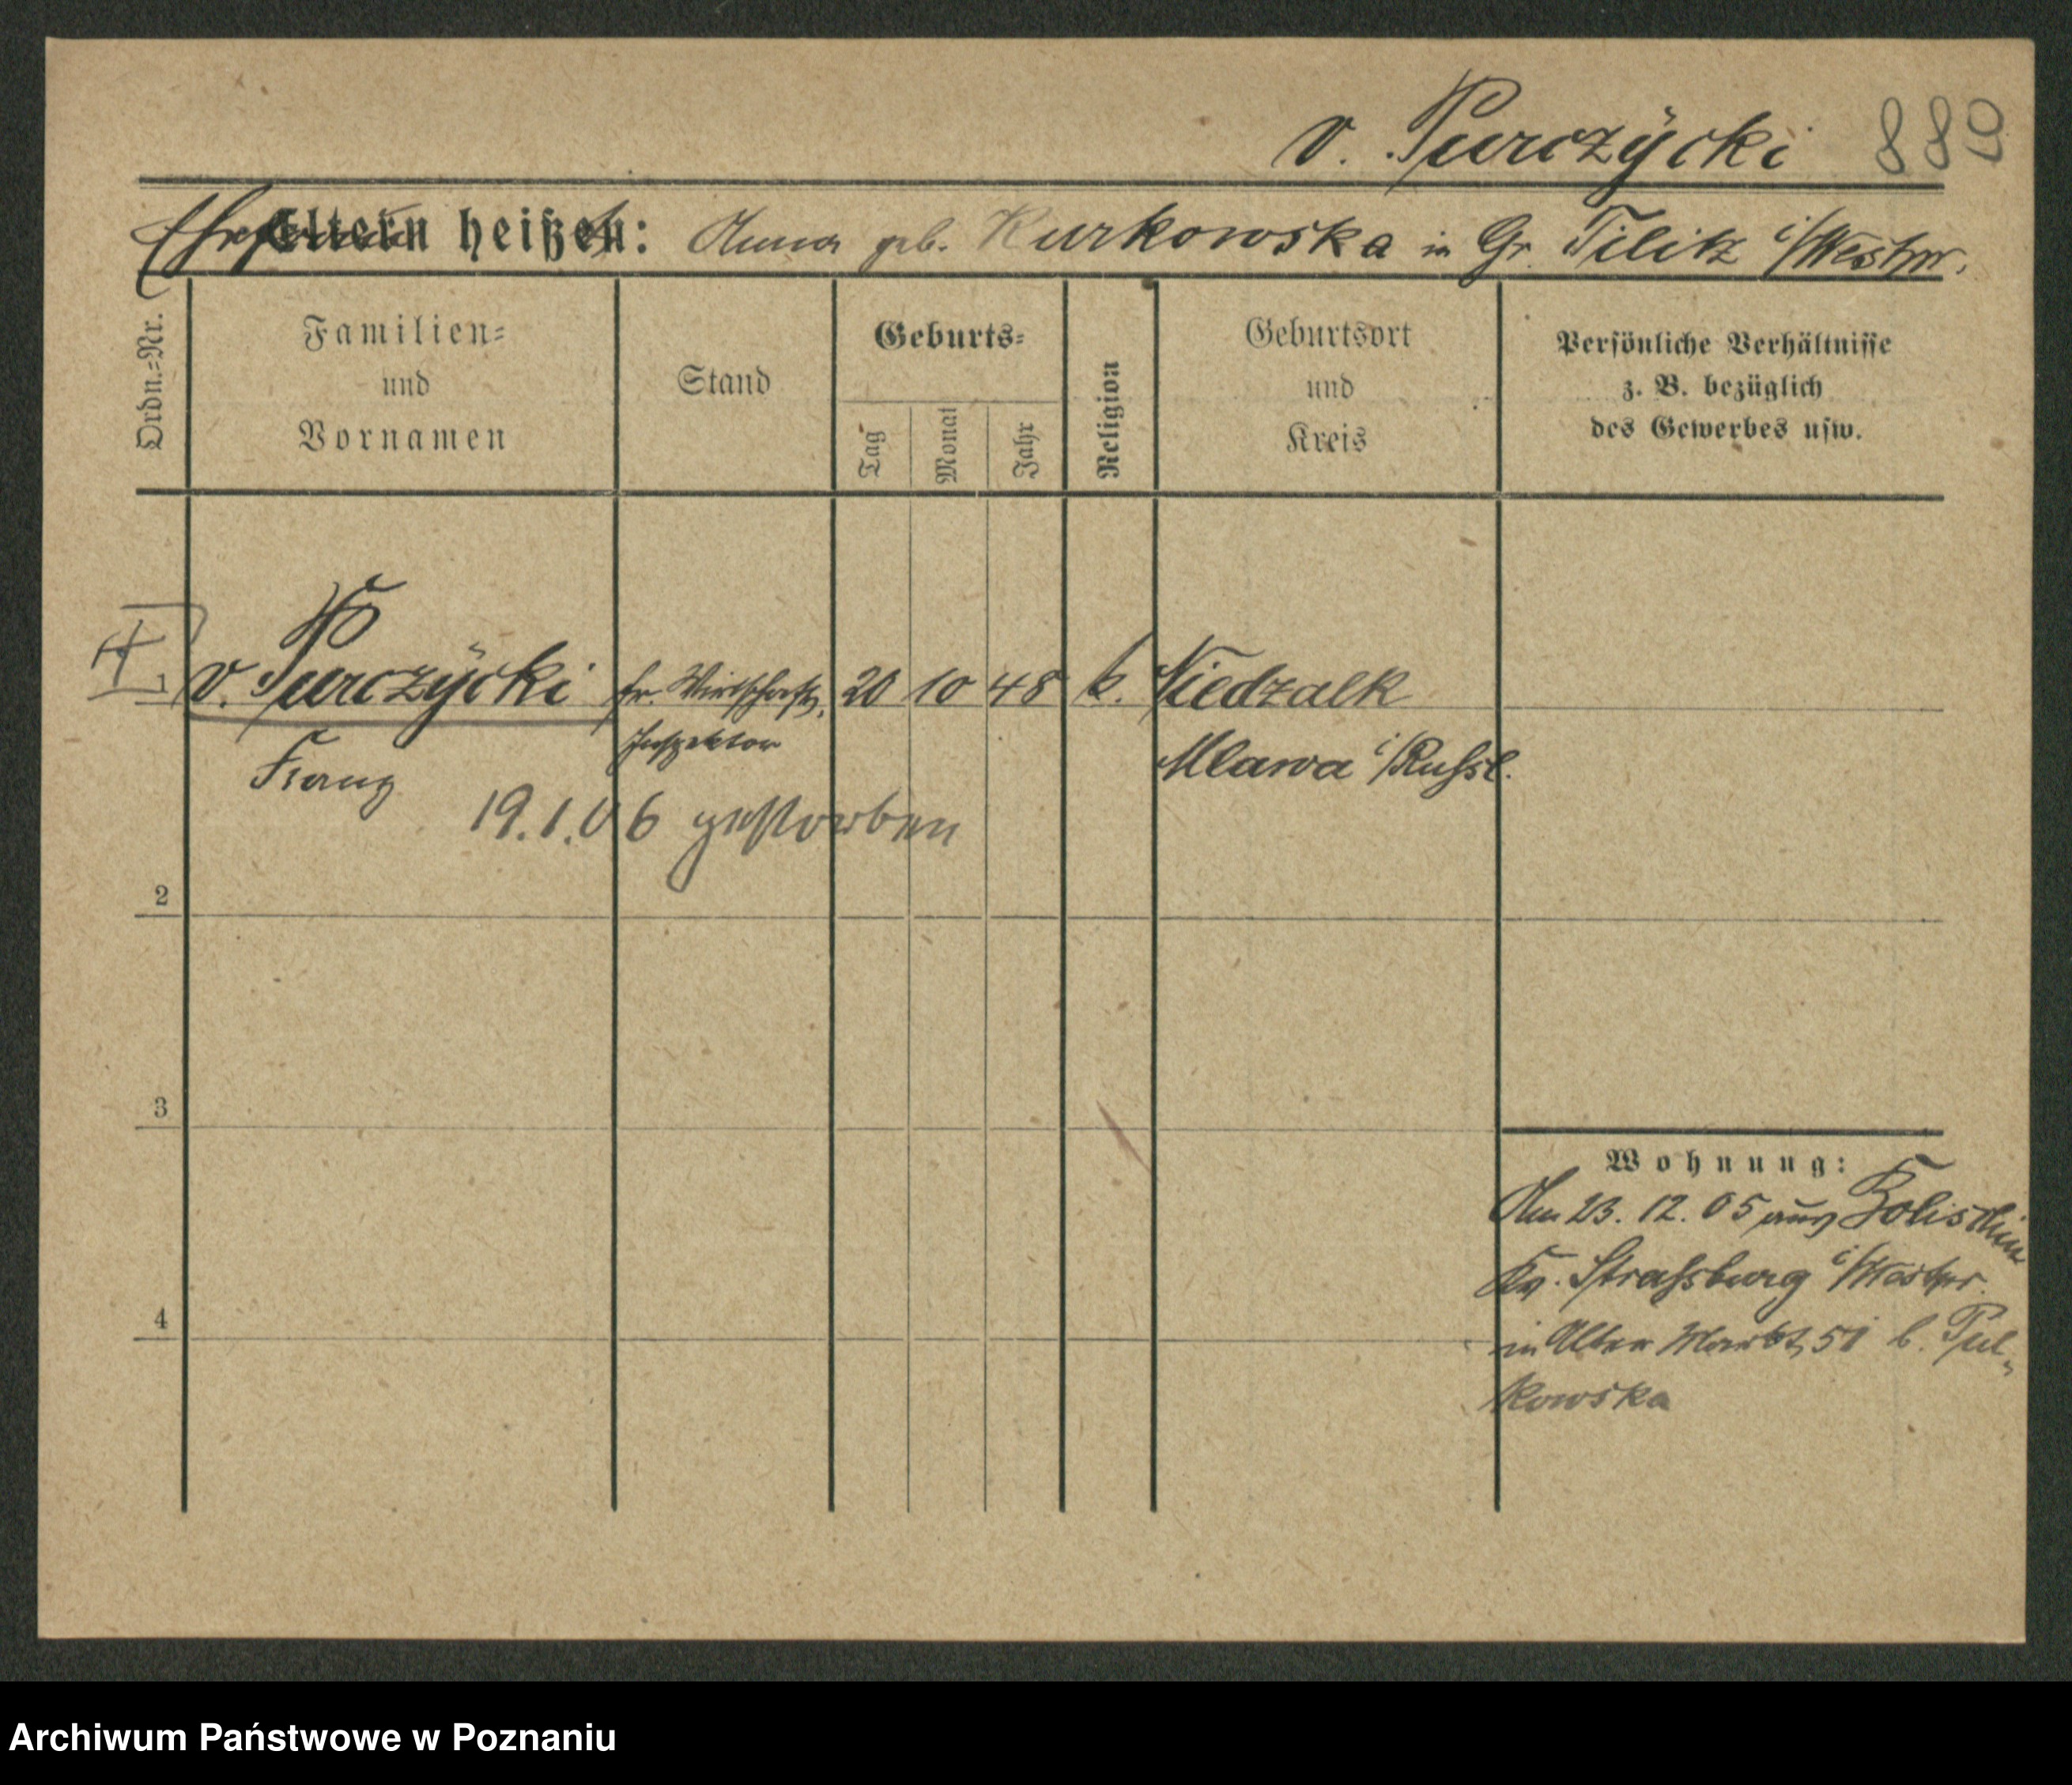 v. Purczÿcki 889
Ehefrau Eltern heißen: Anna geb. Kurkowska in Gr. Tilitz i/Westpr.
Ordn.=Nr.
Familien=
und
Vornamen
Stand
Geburts=
Tag
Monat
Jahr
Religion
Geburtsort
und
Kreis
Persönliche Verhältnisse
z. B. bezüglich
des Gewerbes usw.
1 v. Purczÿcki fr. Wirtschafts, 20 10 48 k. Niedzalk
Inspektor Mlawa i/Russl.
Franz
19.1.06 gestorben
2
3
4
Wohnung:
Am 23. 12. 05 aus
Kr. Strassburg i/Westpr.
in Alter Markt 51 b. Pul-
kowska
Archiwum Państwowe w Poznaniu